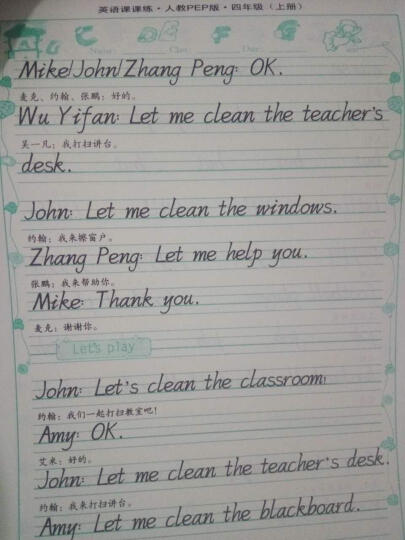 英语课课练·人教PEP版·四年级（上册）
Name: Class: Date:
Mike/John/Zhang Peng: OK.
麦克、约翰、张鹏：好的。
Wu Yifan: Let me clean the teacher's
吴一凡：我打扫讲台。
desk.
John: Let me clean the windows.
约翰：我来擦窗户。
Zhang Peng: Let me help you.
张鹏：我来帮助你。
Mike: Thank you.
麦克：谢谢你。
Let's play
John: Let's clean the classroom!
约翰：我们一起打扫教室吧！
Amy: OK.
艾米：好的。
John: Let me clean the teacher's desk.
约翰：我来打扫讲台。
Amy: Let me clean the blackboard.